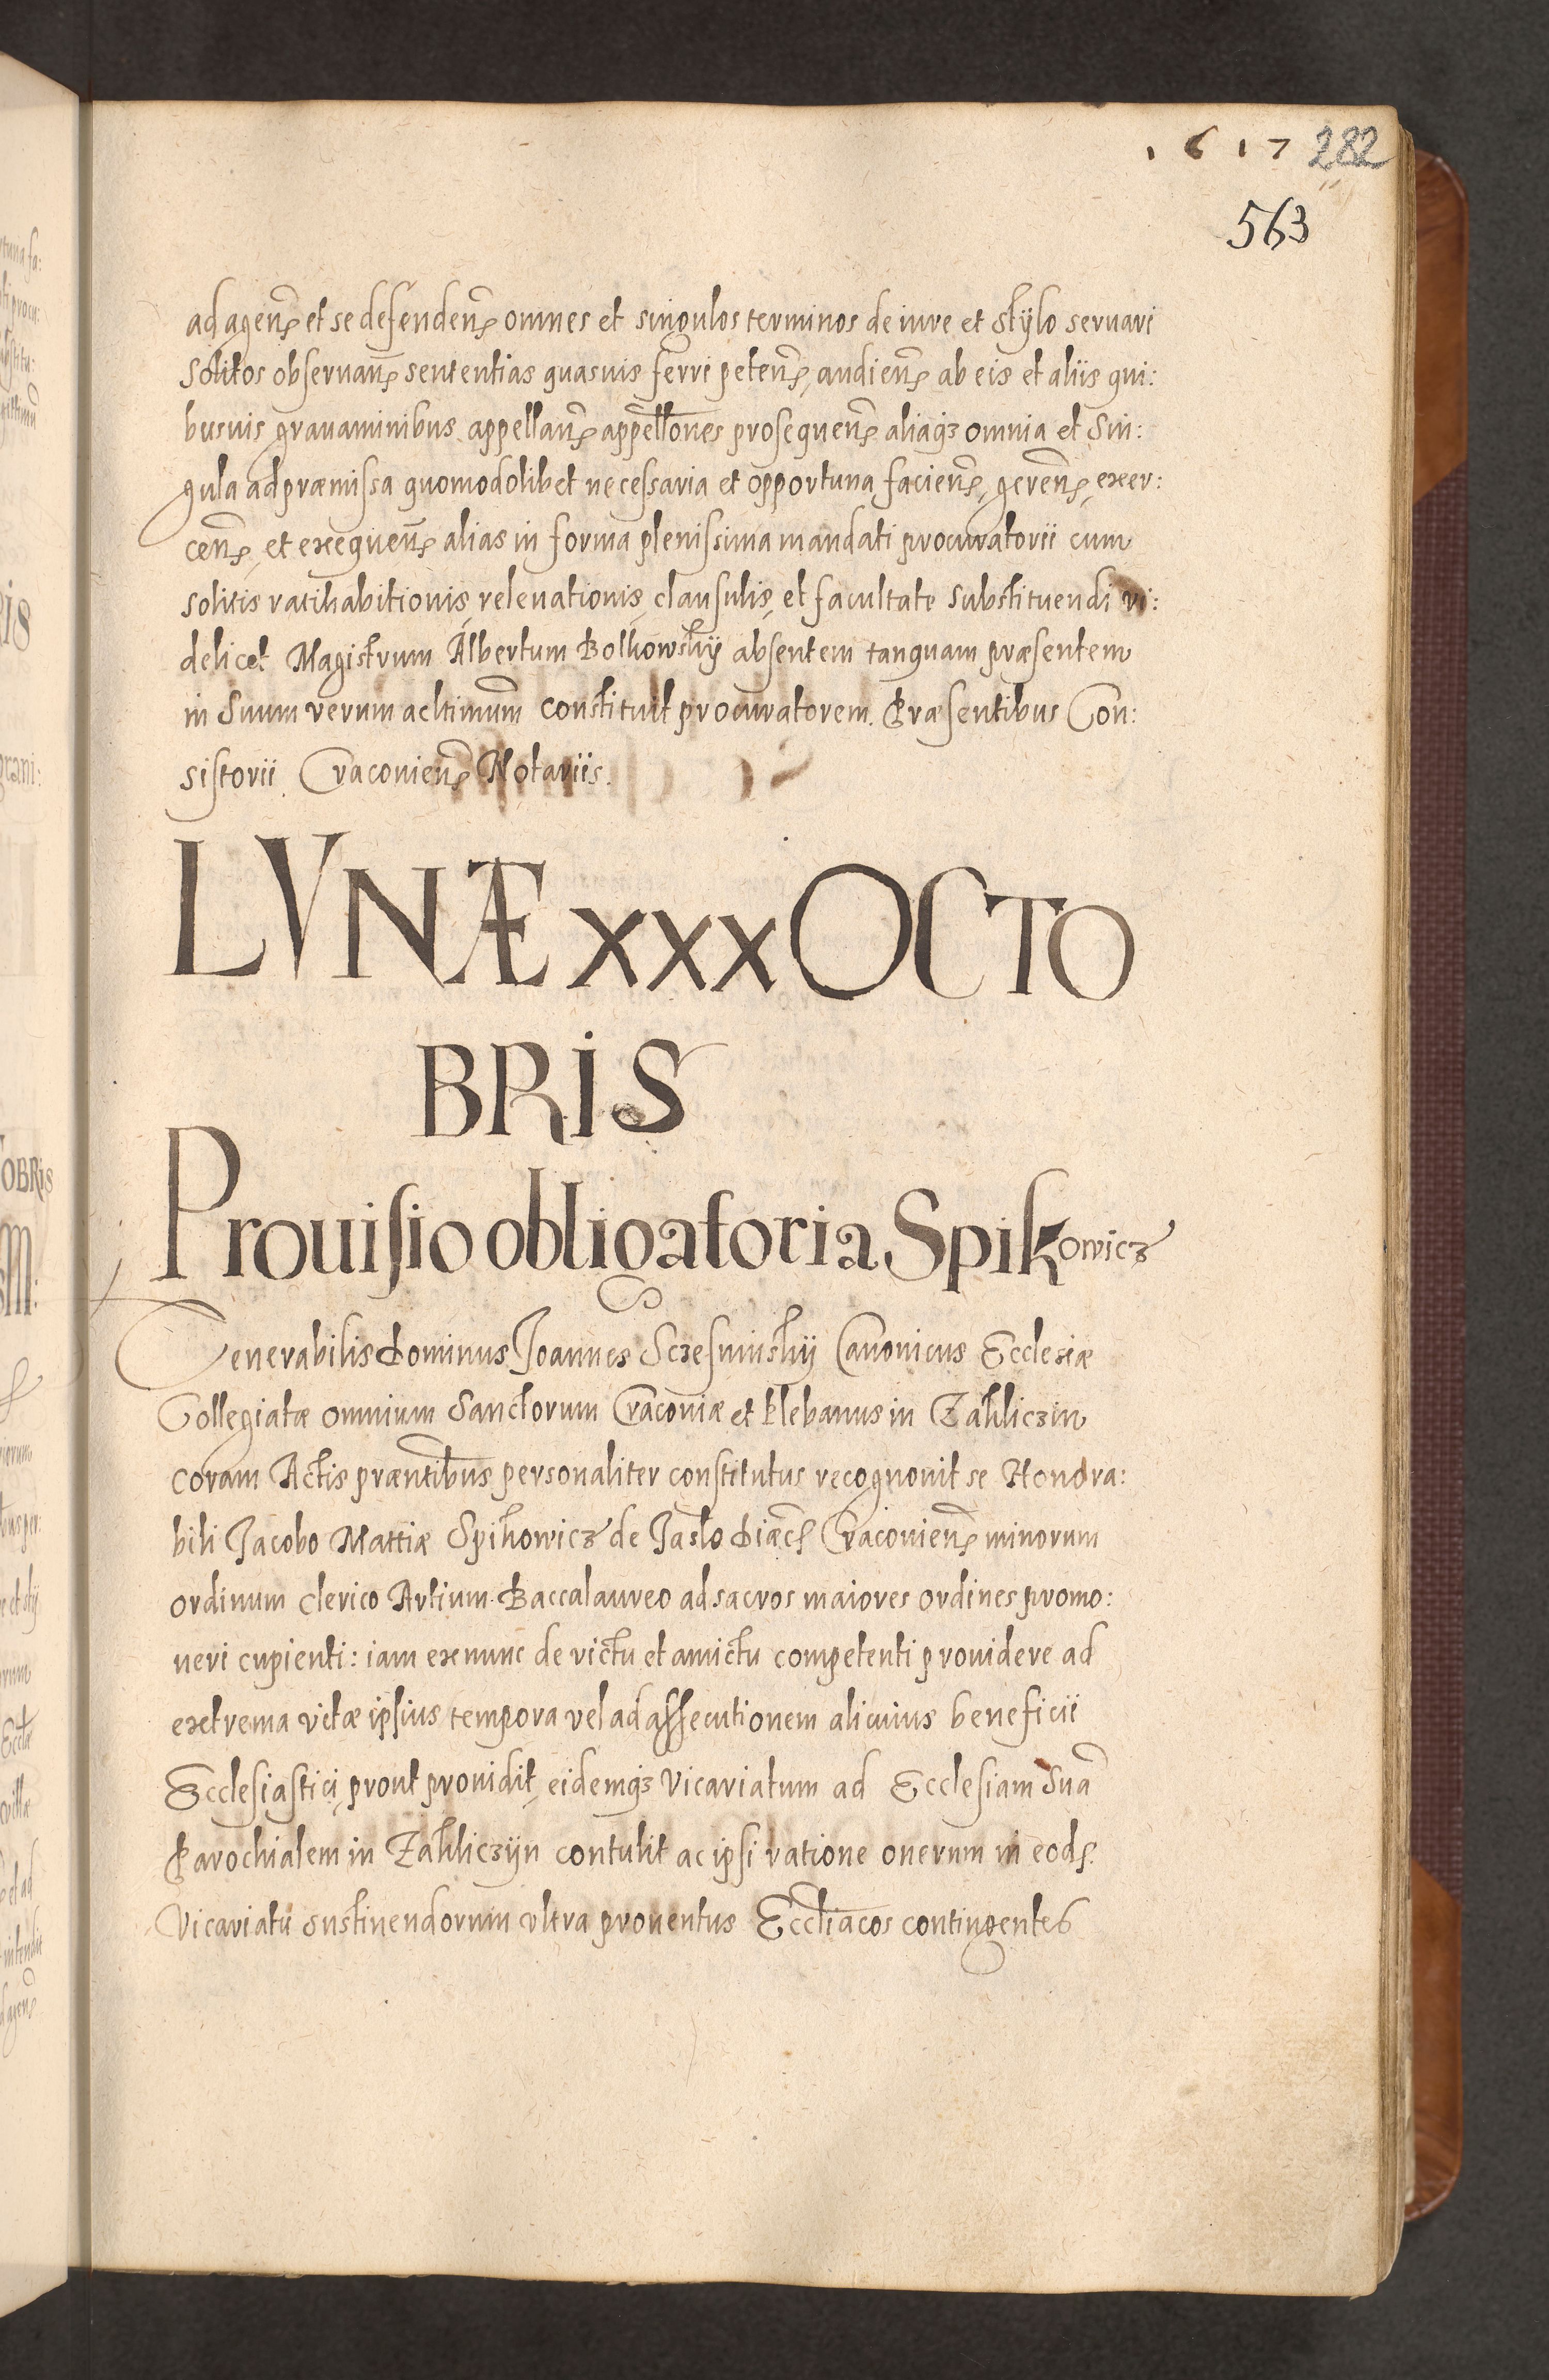 1617 282
563
ad agen͂ et se defenden͂ omnes et singulos terminos de iure et stylo seruari
solitos obseruan͂ sententias quasuis ferri peten͂, audien͂ ab eis et aliis qui:
busuis grauaminibus appellan͂ appellones prosequen͂ aliaqꝫ omnia et sin:
gula ad præmissa quomodolibet necessaria et opportuna facien͂, geren͂, exer:
cen͂, et exequen͂ alias in forma plenissima mandati procuratorii cum
solitis ratihabitionis, releuationis, clausulis, et facultate substituendi vi:
delicet Magistrum Albertum Bolkowskÿ absentem tanquam præsentem
in suum verum ac ltimum̃ constituit procuratorem. Præsentibus Con:
sistorii Cracouien͂ Notariis.
LVNÆ xxx OCTO
BRIS
Prouisio obligatoria Spikowicz
Venerabilis Dominus Joannes Sczesniuskÿ Canonicus Ecclesiæ
Collegiatæ omnium Sanctorum Cracouiæ et Plebanus in Zakliczin
coram Actis præntibus personaliter constitutus recognouit se Honora:
bili Jacobo Mattiæ Spikowicz de Jaslo Diæc͂ Cracouien͂ minorum
ordinum clerico Artium Baccalaureo ad sacros maiores ordines promo:
ueri cupienti: iam ex nunc de victu et amictu competenti prouidere ad
extrema vitæ ipsius tempora vel ad assecutionem alicuius beneficii
Ecclesiastici, prout prouidit, eidemqꝫ Vicariatum ad Ecclesiam suã
Parochialem in Zakliczÿn contulit ac ipsi ratione onerum in eod͂
Vicariatu sustinendorum vltra prouentus Eccliacos contingentes